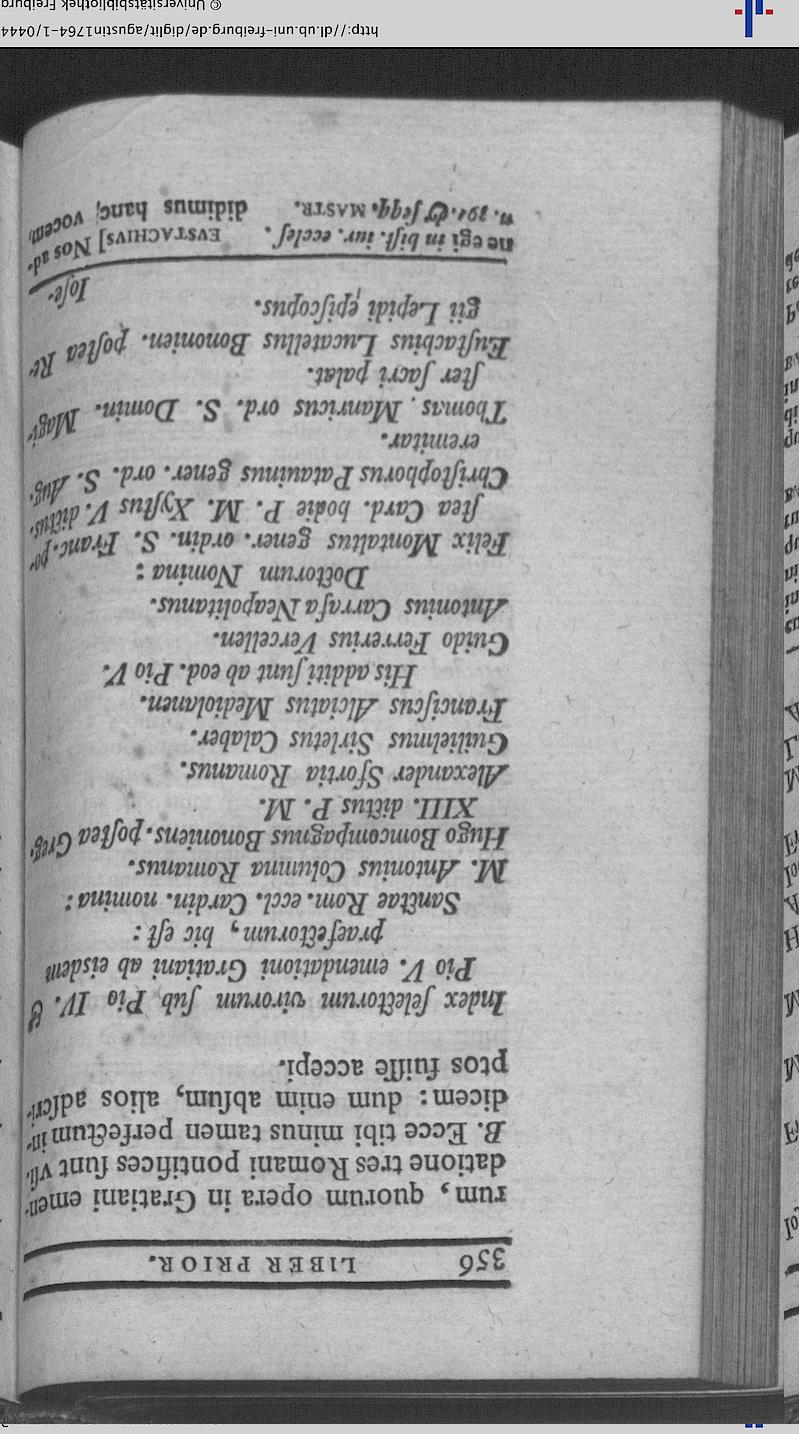 356 LIBER PRIOR.
rum, quorum opera in Gratiani emen-
datione tres Romani pontifices ſunt vſi.
B. Ecce tibi minus tamen perfectum in-
dicem: dum enim abſum, alios adſcri-
ptos fuiſſe accepi.
Index ſelectorum virorum ſub Pio IV. &
Pio V. emendationi Gratiani ab eisdem
praefectorum, hic eſt:
Sanctae Rom. eccl. Cardin. nomina:
M. Antonius Columna Romanus.
Hugo Bomcompagnus Bononiens. poſtea Greg.
XIII. dictus P. M.
Alexander Sfortia Romanus.
Guilielmus Sirletus Calaber.
Franciſcus Alciatus Mediolanen.
His additi ſunt ab eod. Pio V.
Guido Ferrerius Vercellen.
Antonius Carrafa Neapolitanus.
Doctorum Nomina:
Felix Montaltus gener. ordin. S. Franc. po-
ſtea Card. hodie P. M. Xyſtus V. dictus.
Chriſtophorus Patauinus gener. ord. S. Aug.
eremitar.
Thomas Manricus ord. S. Domin. Magi-
ſter ſacri palat.
Euſtachius Lucatellus Bononien. poſtea Re-
gii Lepidi epiſcopus.
Ioſe-
ne egi in hiſt. iur. eccleſ.
n. 191. & ſeqq. MASTR.
EVSTACHIVS] Nos ad-
didimus hanc vocem,
http://dl.ub.uni-freiburg.de/diglit/augustin1764-1/0444
© Universitätsbibliothek Freiburg